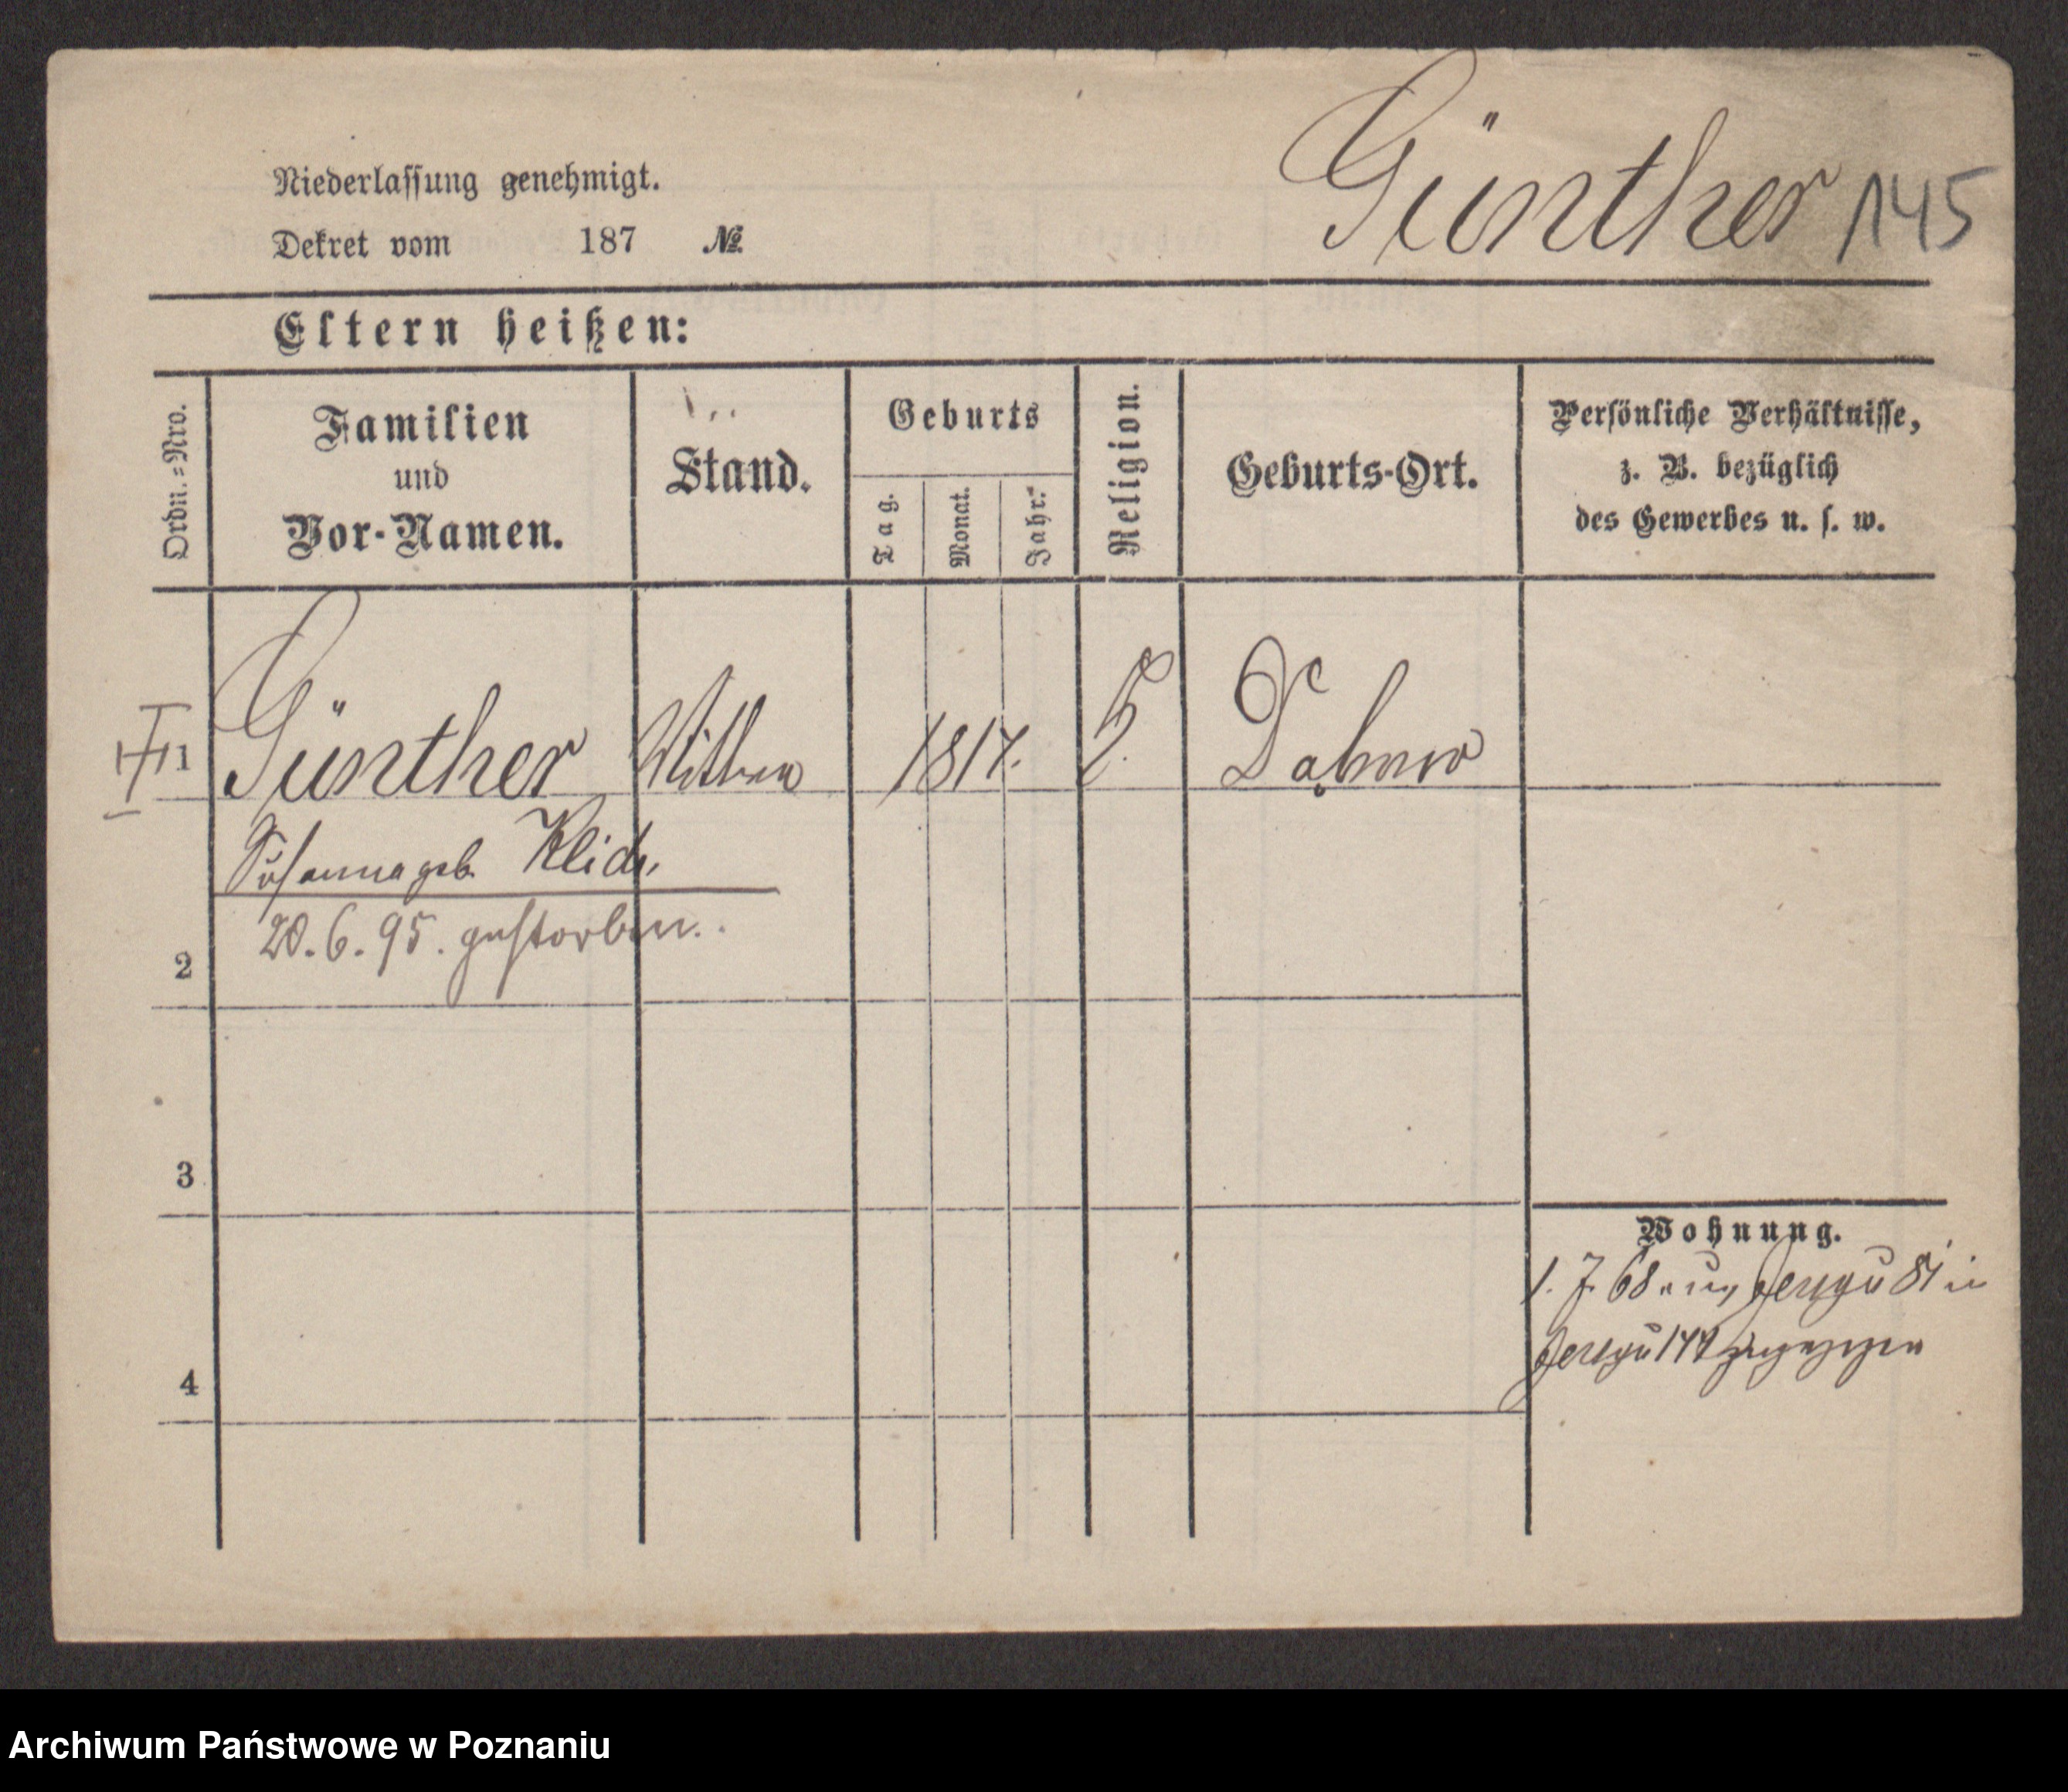 Günther 145
Niederlassung genehmigt.
Dekret vom 187 №
Eltern heißen:
Ordn.=Nro.
Familien
und
Vor-Namen.
Stand.
Geburts
Tag.
Monat.
Jahr.
Religion.
Geburts-Ort.
Persönliche Verhältnisse,
z. B. bezüglich
des Gewerbes u. s. w.
1 Günther Wittwe 1817.
Susanna geb.
20. 6. 95. gestorben.
2
3
Wohnung.
1. 7. 68
4
Archiwum Państwowe w Poznaniu